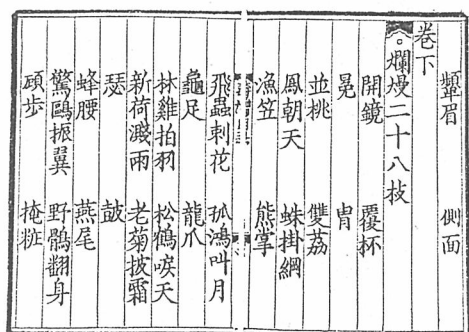 顰眉　側面
卷下
爛熳二十八枝
開鏡　覆杯
冕　冑
並桃　雙荔
鳳朝天　蛛掛網
漁笠　熊掌
飛蟲刺花　孤鴻叫月
龜足　龍爪
林雞拍羽　松鶴唳天
新荷濺雨　老菊披霜
瑟　鼓
蜂腰　燕尾
驚鷗振翼　野鶻翻身
頋步　掩粧